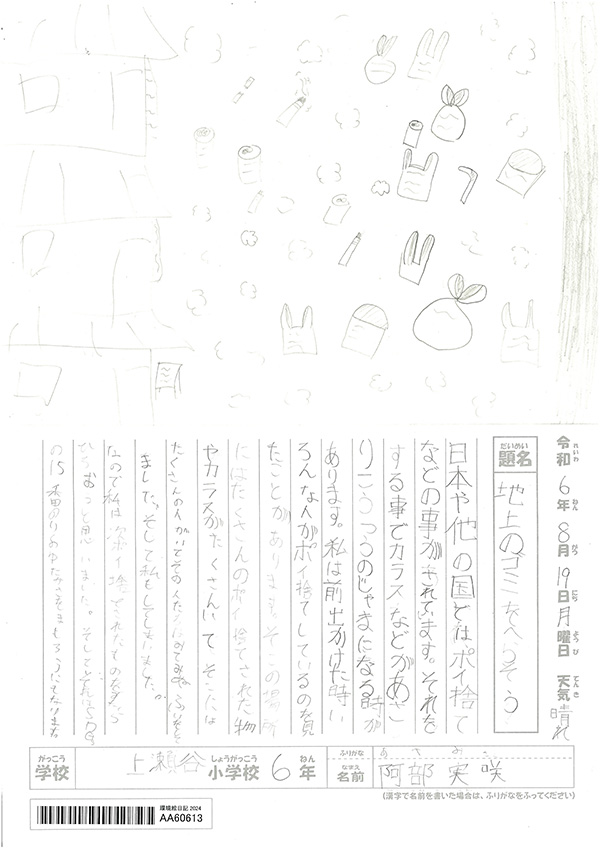 令和6年8月19日月曜日 天気 晴れ
題名 地上のゴミをへらそう
日本や他の国ではポイ捨て
などの事がされています。それを
する事でカラスなどがあさ
りこうつうのじゃまになる時が
あります。私は前出かけた時い
ろんな人がポイ捨てしているのを見
たことがあります。そこの場所
にはたくさんのポイ捨てされた物
やカラスがたくさんいてそこには
たくさんの人がいてその人たちは
ました。そして私も
なので私は次ポイ捨てされたものを見たら
ひろおっと思いました。そしてこれはSDGs
の15番
学校 上瀬谷小学校 6年
ふりがな あ
名前 阿部 実咲
(漢字で名前を書いた場合は、ふりがなをふってください)
環境絵日記 2024
AA60613